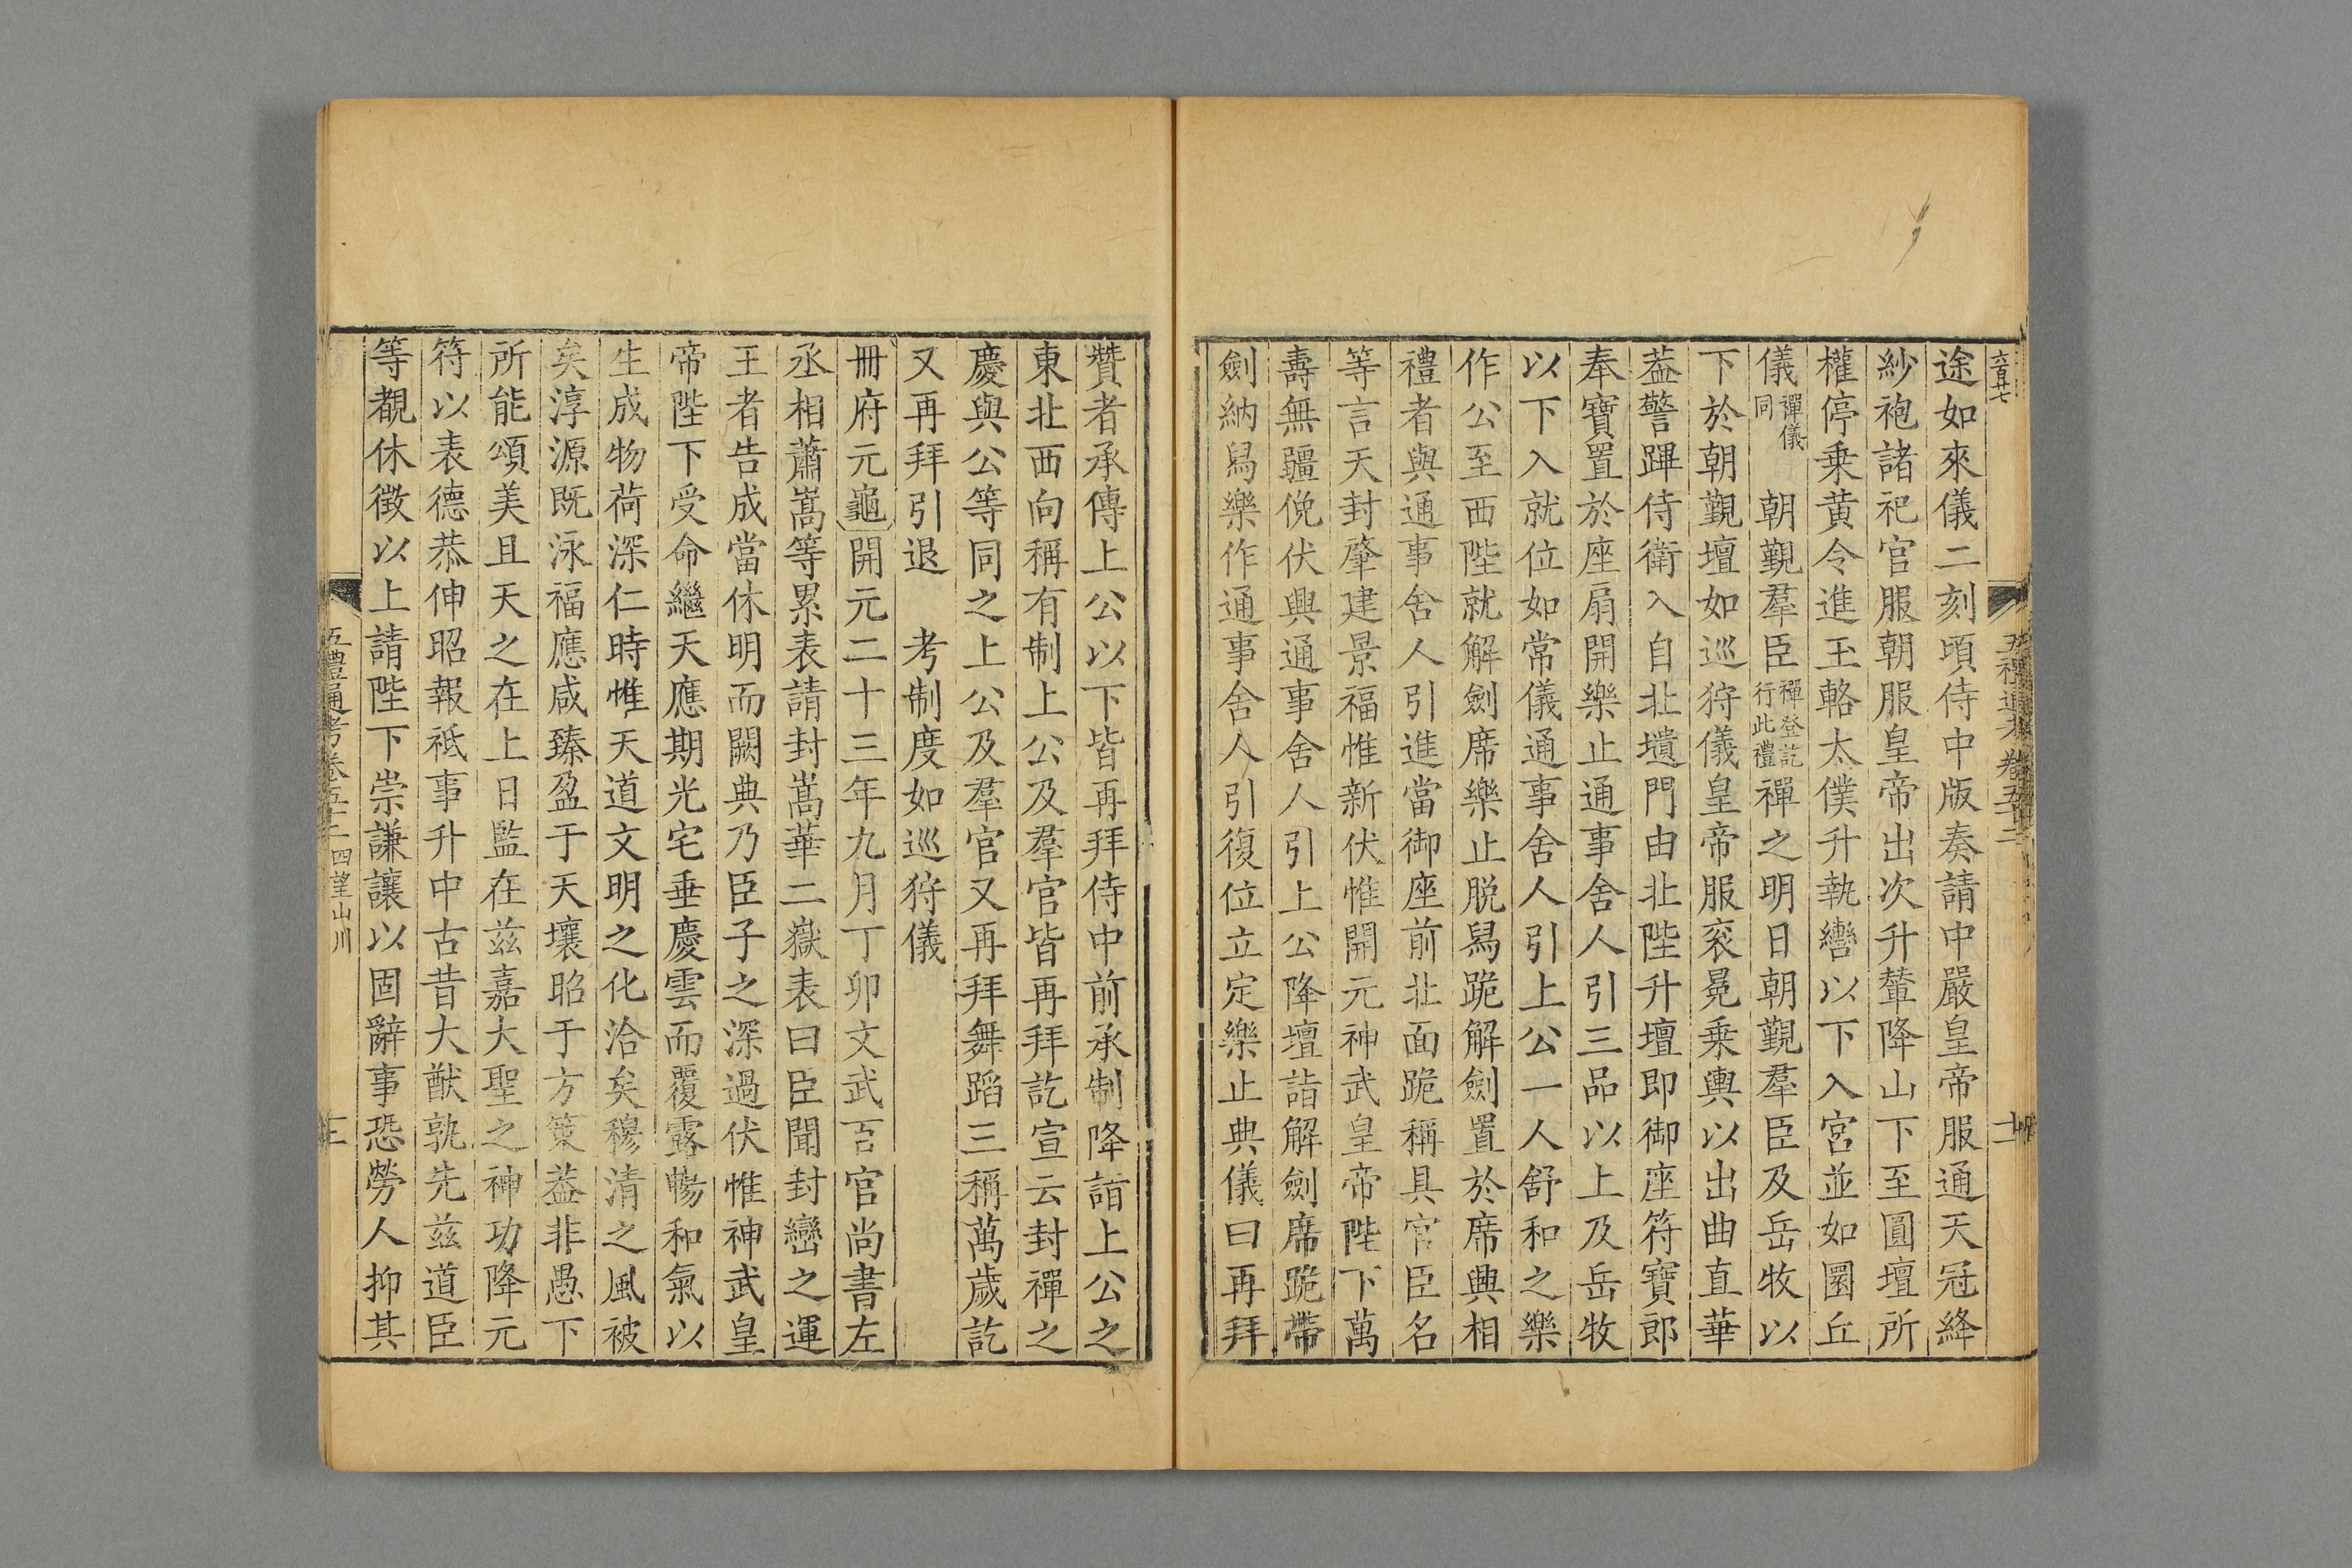 途如來儀二刻頃侍中版奏請中嚴皇帝服通天冠絳
紗袍諸祀官服朝服皇帝出次升輦降山下至圓壇所
權停乗黄令進玉輅太僕升執轡以下入宮並如圜丘
儀禪儀同 朝覲羣臣禪登訖行此禮禪之明日朝覲羣臣及岳牧以
下於朝覲壇如巡狩儀皇帝服衮冕乗輿以出曲直華
葢警蹕侍衛入自北壝門由北陛升壇即御座符寶郎
奉寶置於座扇開樂止通事舍人引三品以上及岳牧
以下入就位如常儀通事舍人引上公一人舒和之樂
作公至西陛就解劍席樂止脱舄跪解劍置於席興相
禮者與通事舍人引進當御座前北面跪稱具官臣名
等言天封肇建景福惟新伏惟開元神武皇帝陛下萬
壽無疆俛伏興通事舍人引上公降壇詣解劍席跪帶
劍納舄樂作通事舍人引復位立定樂止典儀曰再拜
贊者承傳上公以下皆再拜侍中前承制降詣上公之
東北西向稱有制上公及羣官皆再拜訖宣云封禪之
慶與公等同之上公及羣官又再拜舞蹈三稱萬歲訖
又再拜引退 考制度如巡狩儀
冊府元龜開元二十三年九月丁卯文武百官尚書左
丞相蕭嵩等累表請封嵩華二嶽表曰臣聞封巒之運
王者告成當休明而闕典乃臣子之深過伏惟神武皇
帝陛下受命繼天應期光宅垂慶雲而覆露暢和氣以
生成物荷深仁時惟天道文明之化洽矣穆清之風被
矣淳源既泳福應咸臻盈于天壤昭于方策葢非愚下
所能頌美且天之在上日監在兹嘉大聖之神功降元
符以表德恭伸昭報祗事升中古昔大猷孰先兹道臣
等覩休徵以上請陛下崇謙讓以固辭事恐勞人抑其
五禮通考卷五十二 四望山川